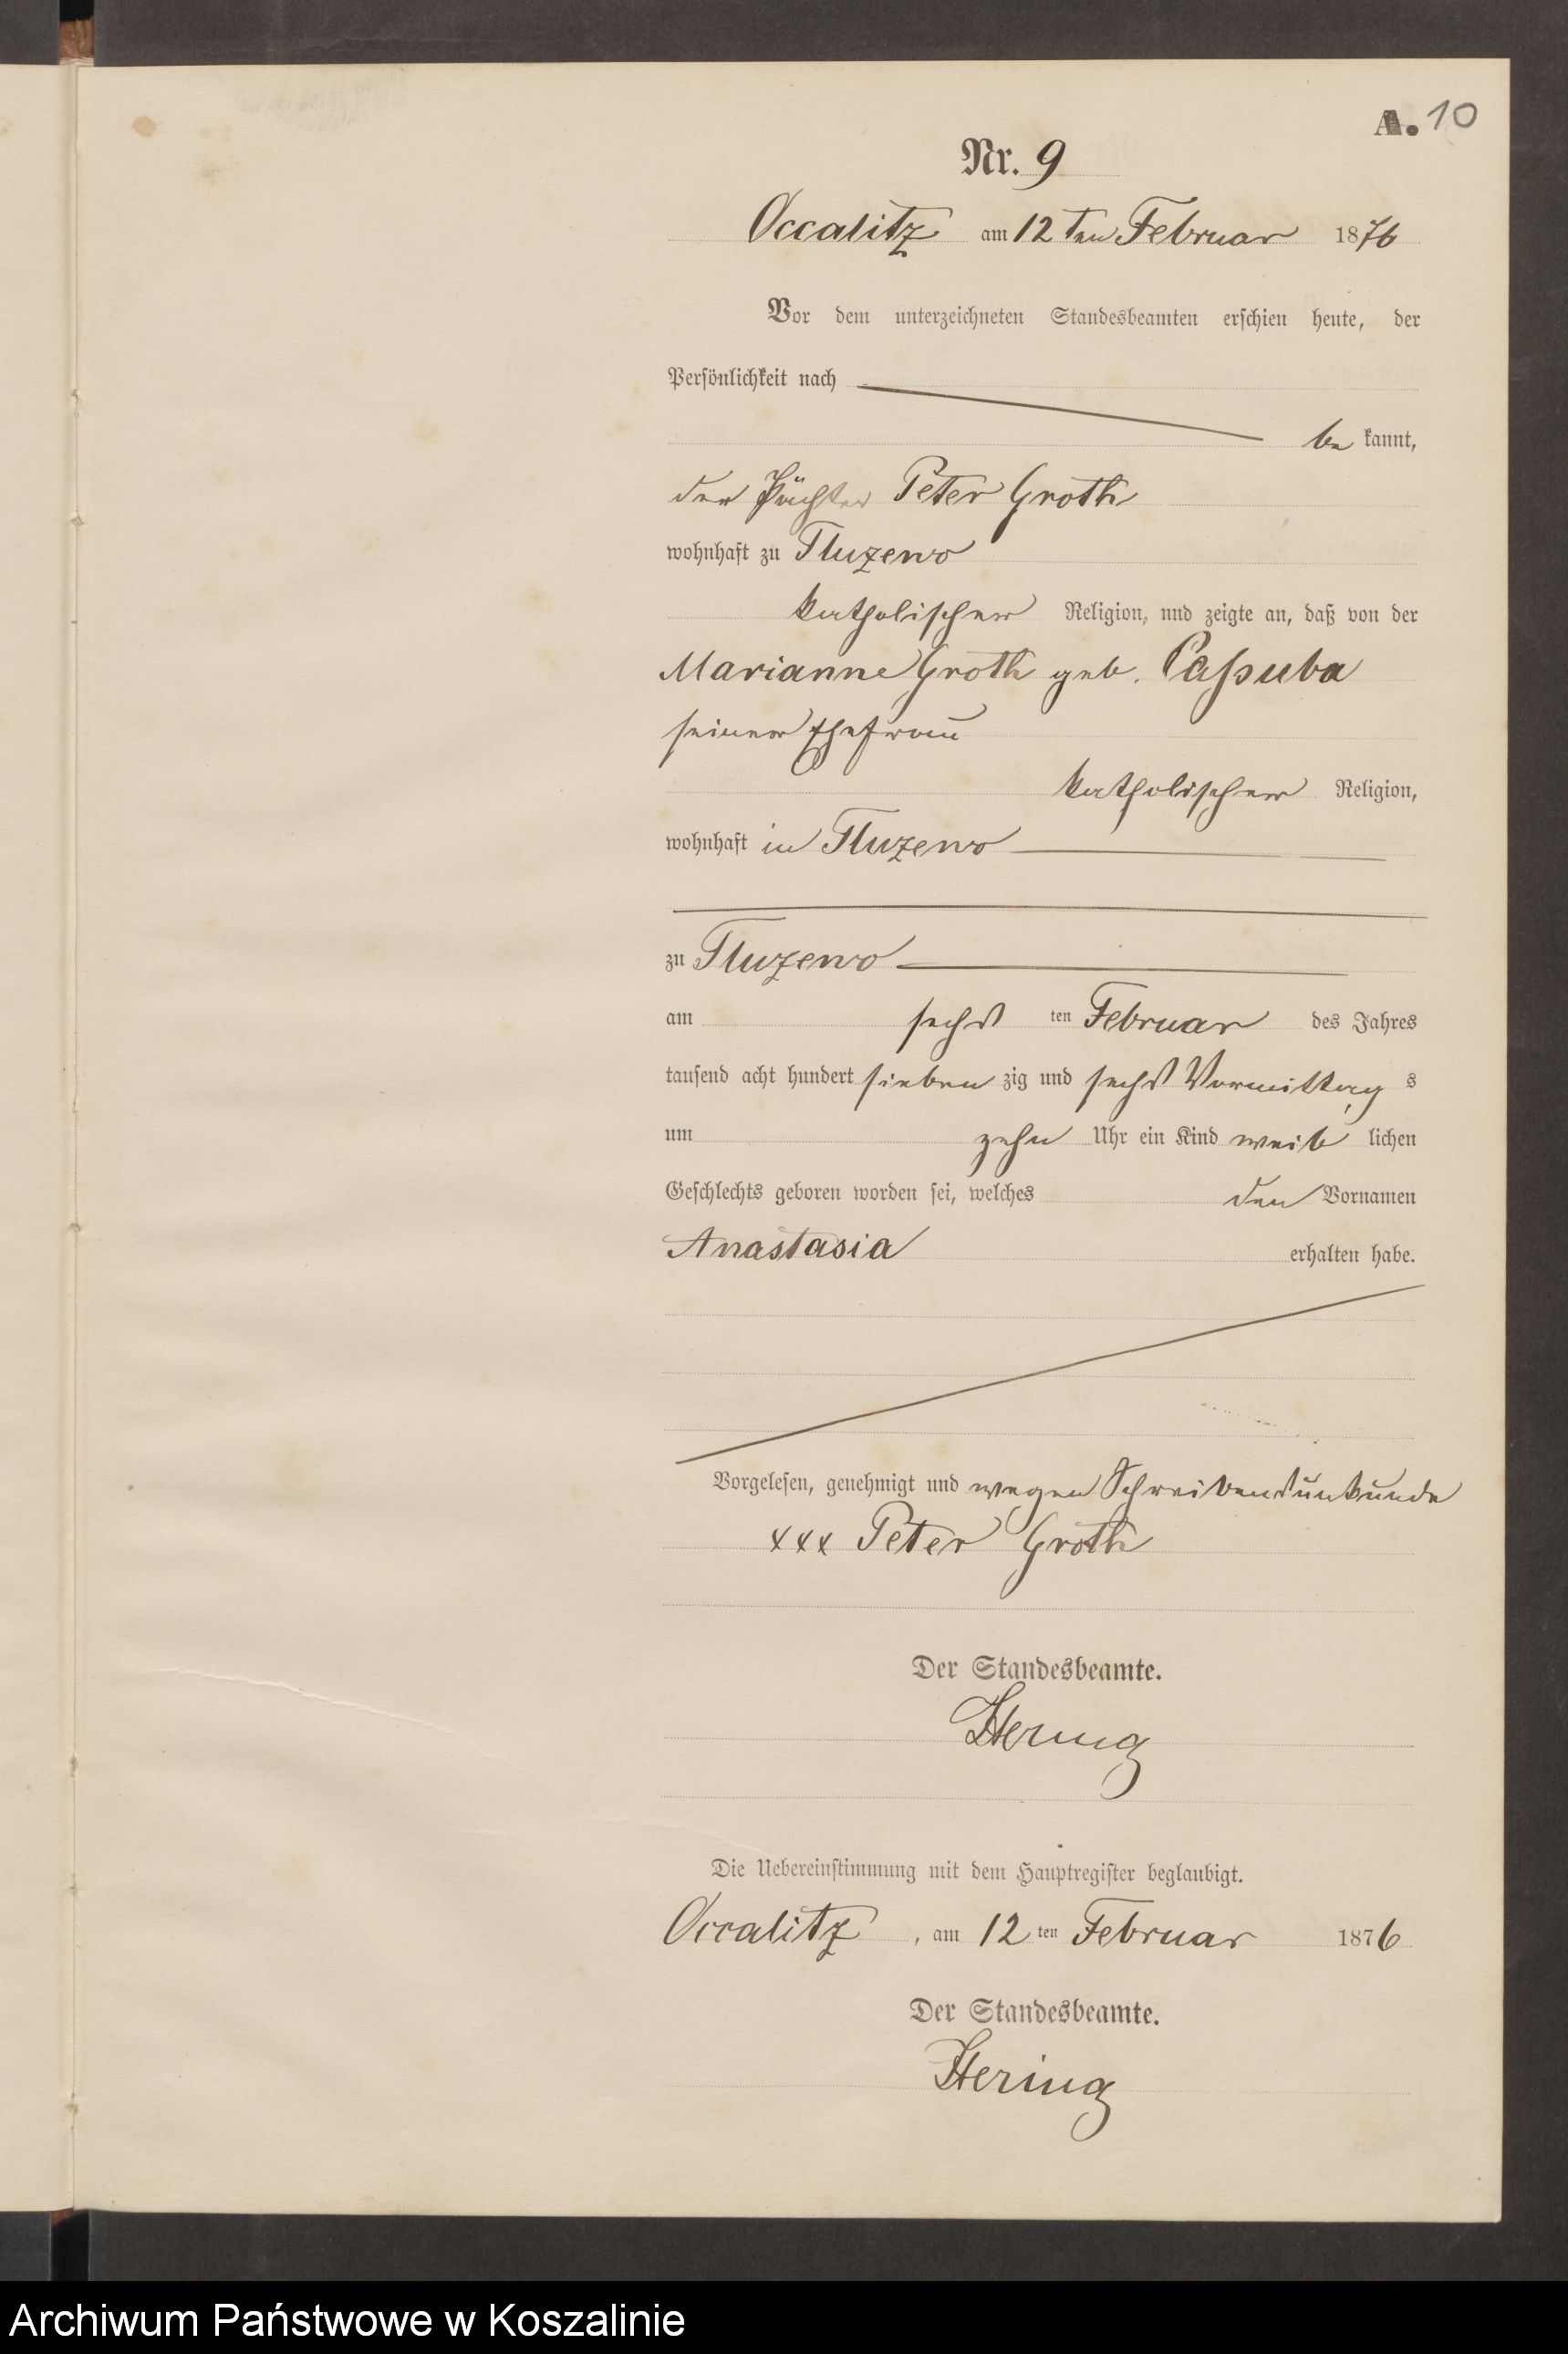 A. 10
Nr. 9
Occalitz am 12ten Februar 1876
Vor dem unterzeichneten Standesbeamten erschien heute, der
Persönlichkeit nach
be kannt,
der Pächter Peter Groth
wohnhaft zu Tluzewo
katholischer Religion, und zeigte an, daß von der
Marianne Groth geb. Caßuba
seiner Ehefrau
katholischer Religion,
wohnhaft in Tluzewo
zu Tluzewo
am sechs ten Februar des Jahres
tausend acht hundert sieben zig und sechs Vormittag s
um zehn Uhr ein Kind weib lichen
Geschlechts geboren worden sei, welches den Vornamen
Anastasia erhalten habe.
Vorgelesen, genehmigt und wegen Schreibensunkunde
xxx Peter Groth
Der Standesbeamte.
Hering
Die Uebereinstimmung mit dem Hauptregister beglaubigt.
Occalitz, am 12 ten Februar 1876
Der Standesbeamte.
Hering
Archiwum Państwowe w Koszalinie